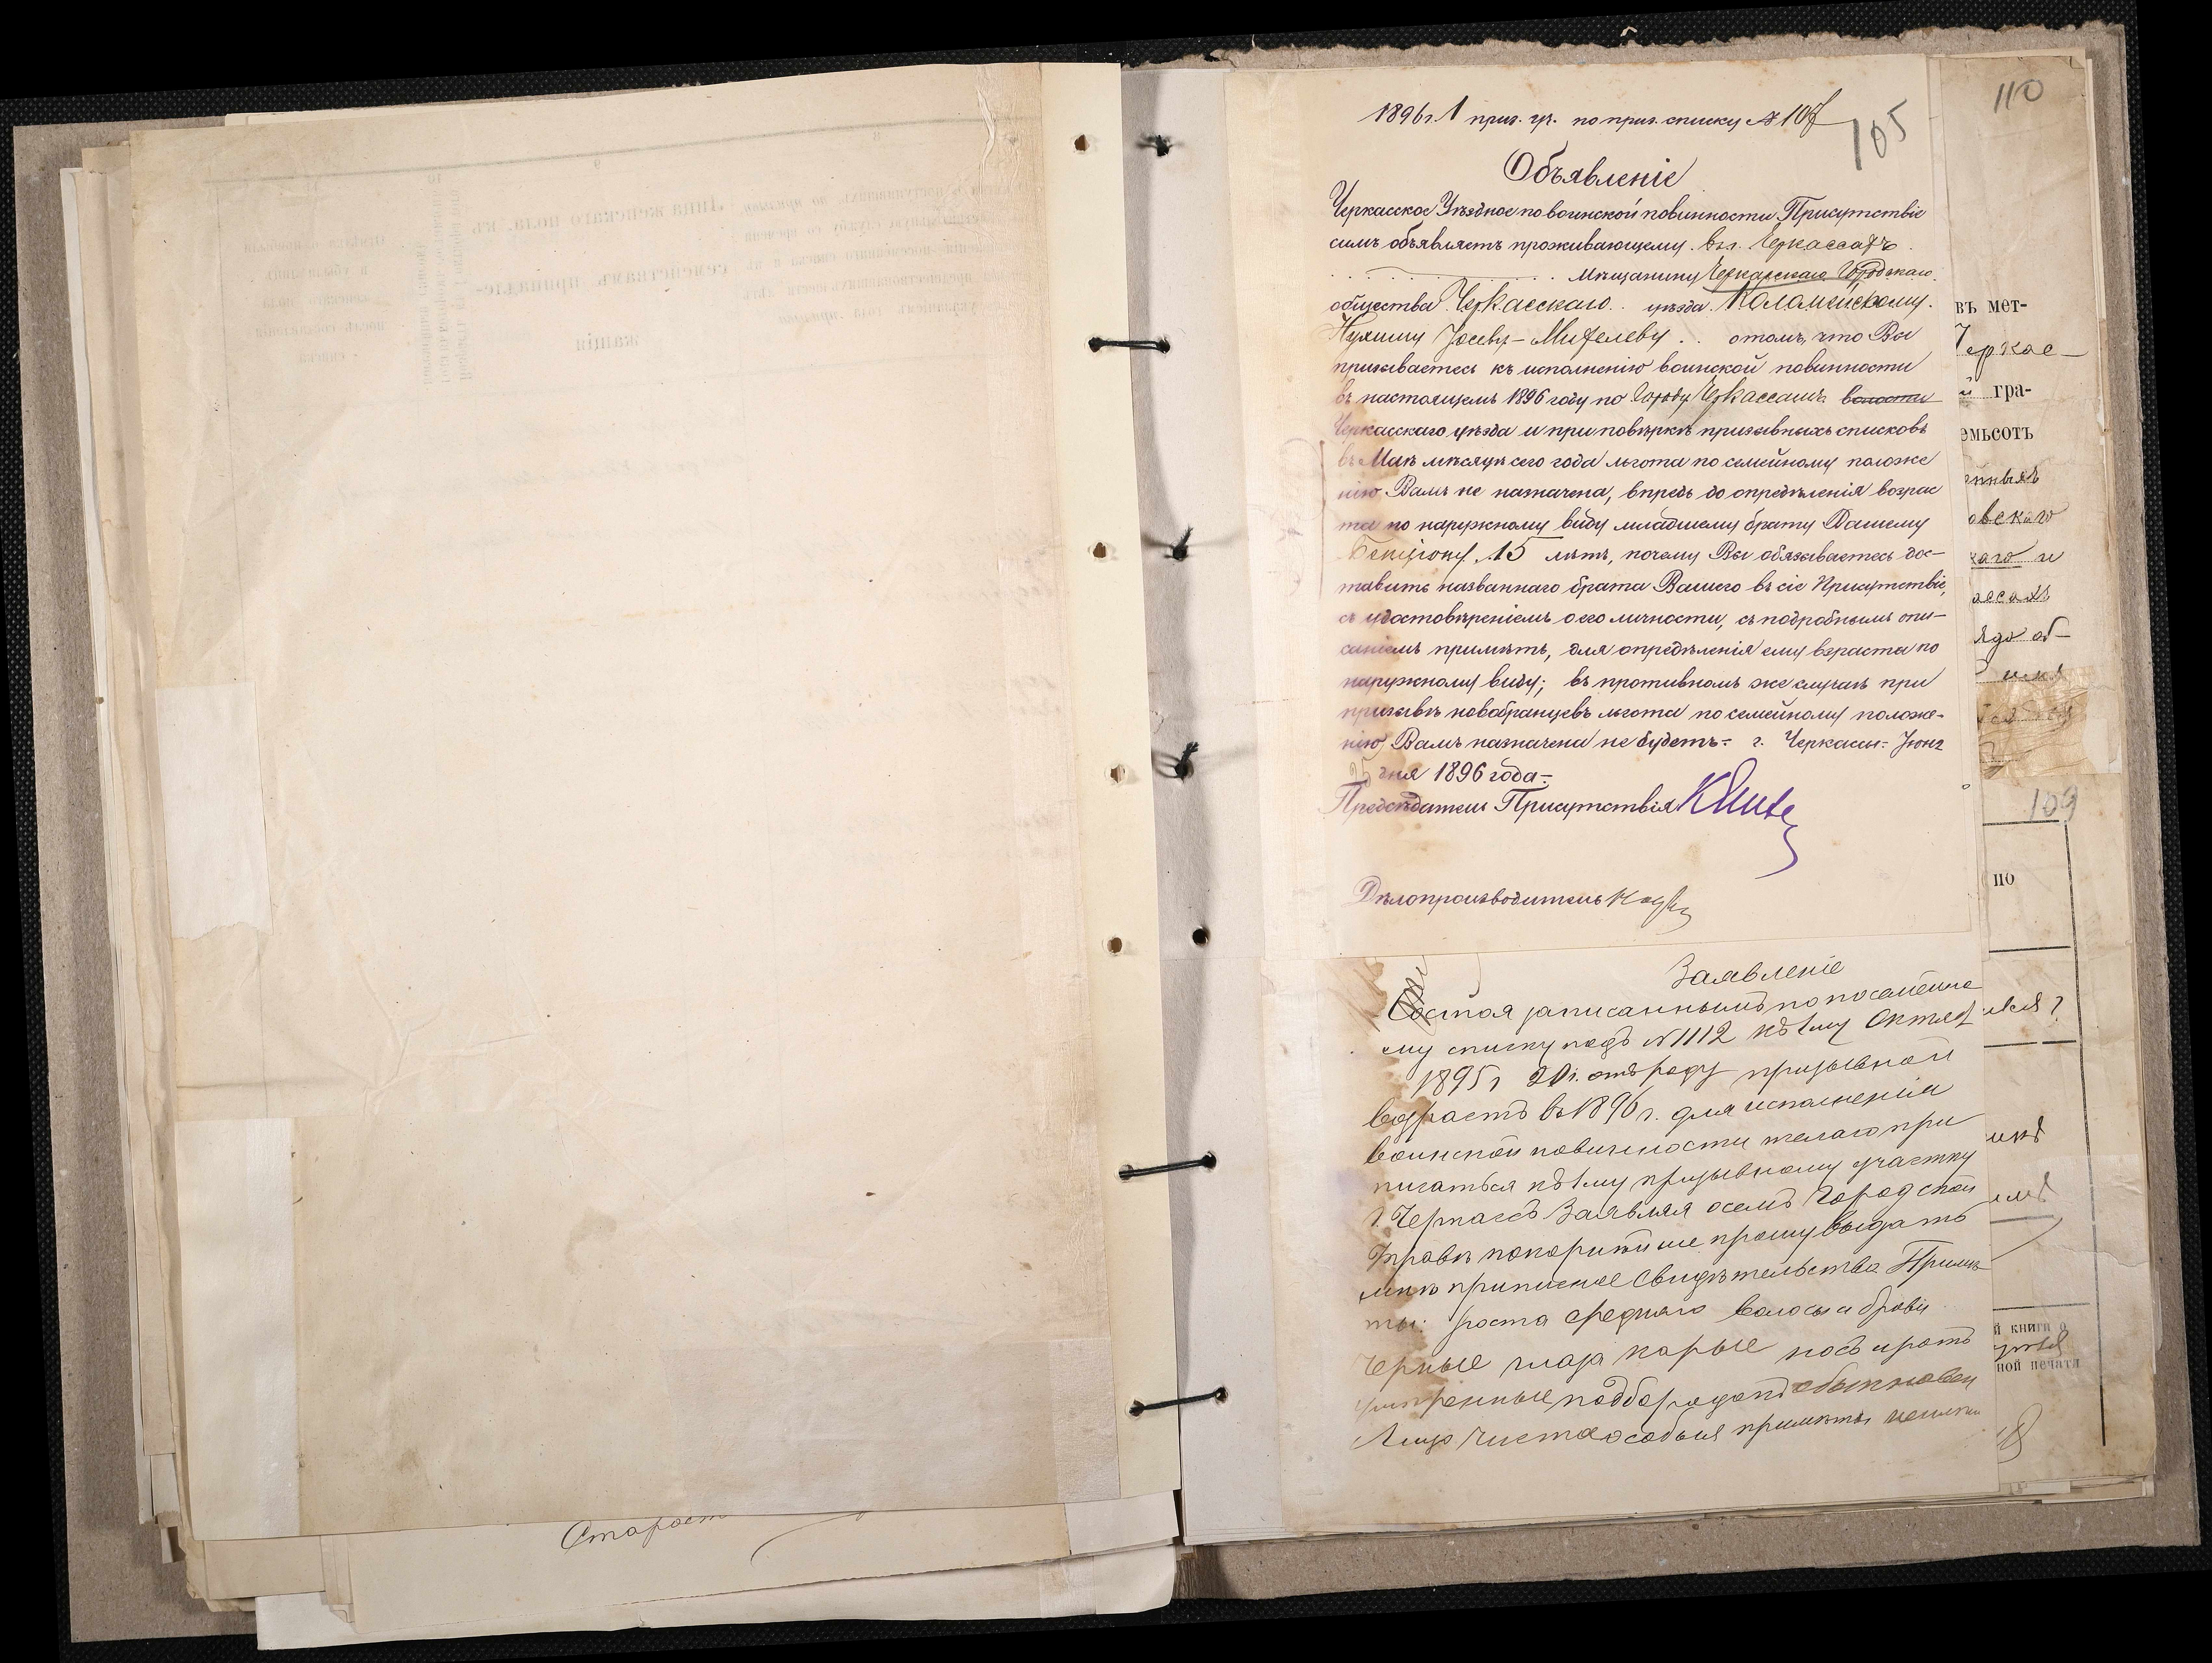 1896 г. 1 приз. уч. по приз. списку № 107
105
110
Объявленіе
Черкасское Уѣздное по воинской повинности Присутствіе
симъ объявляетъ проживающему въ г. Черкассахъ
Мѣщанину Черкасскаго Городскаго
общества Черкасскаго уѣзда
о томъ, что Вы
призываетесь къ исполненію воинской повинности
въ настоящемъ 1896 году по Городу Черкассамъ волости
Черкасскаго уѣзда и при повѣркѣ призывныхъ списковъ
въ Маѣ мѣсяцѣ сего года льгота по семейному положе
нію Вамъ не назначена, впредь до опредѣленія возрас
та по наружному виду младшему брату Вашему
Бенціону 15 лѣтъ, почему Вы обязываетесь дос-
тавить названнаго брата Вашего въ сіе Присутствіе,
съ удостовѣреніемъ о его личности, съ подробнымъ опи-
саніемъ примѣтъ, для опредѣленія ему возраста по
наружному виду; въ противномъ же случаѣ при
призывѣ новобранцевъ льгота по семейному положе-
нію Вамъ назначена не будетъ. г. Черкассы. Іюня
25 дня 1896 года.
Предсѣдатель Присутствія
Дѣлопроизводитель
Заявленіе
Состоя записаннымъ по посемейно
му списку подъ № 1112 къ 1му Октяб
1895 г 20 г. отъ роду призывной
возрастъ въ 1896 г. для исполненія
воинской повинности желаю при
писаться къ 1му призывному участку
г. Черкассъ Заявляя о семъ Городской
Управѣ покорнѣйше прошу выдать
мнѣ приписное Свидѣтельство Примѣ
ты: роста средняго волосы и брови
черные глаза карые носъ и ротъ
умѣренные подбородокъ обыкновен
Лицо чистое особыя примѣты
въ мет-
Черкас-
й гра-
емьсотъ
овскаго
каго и
ассахъ
109
по
й книги о
ной печати
Старост
8
9
10
11
Лица женскаго пола, къ
семействамъ принадле-
жащія